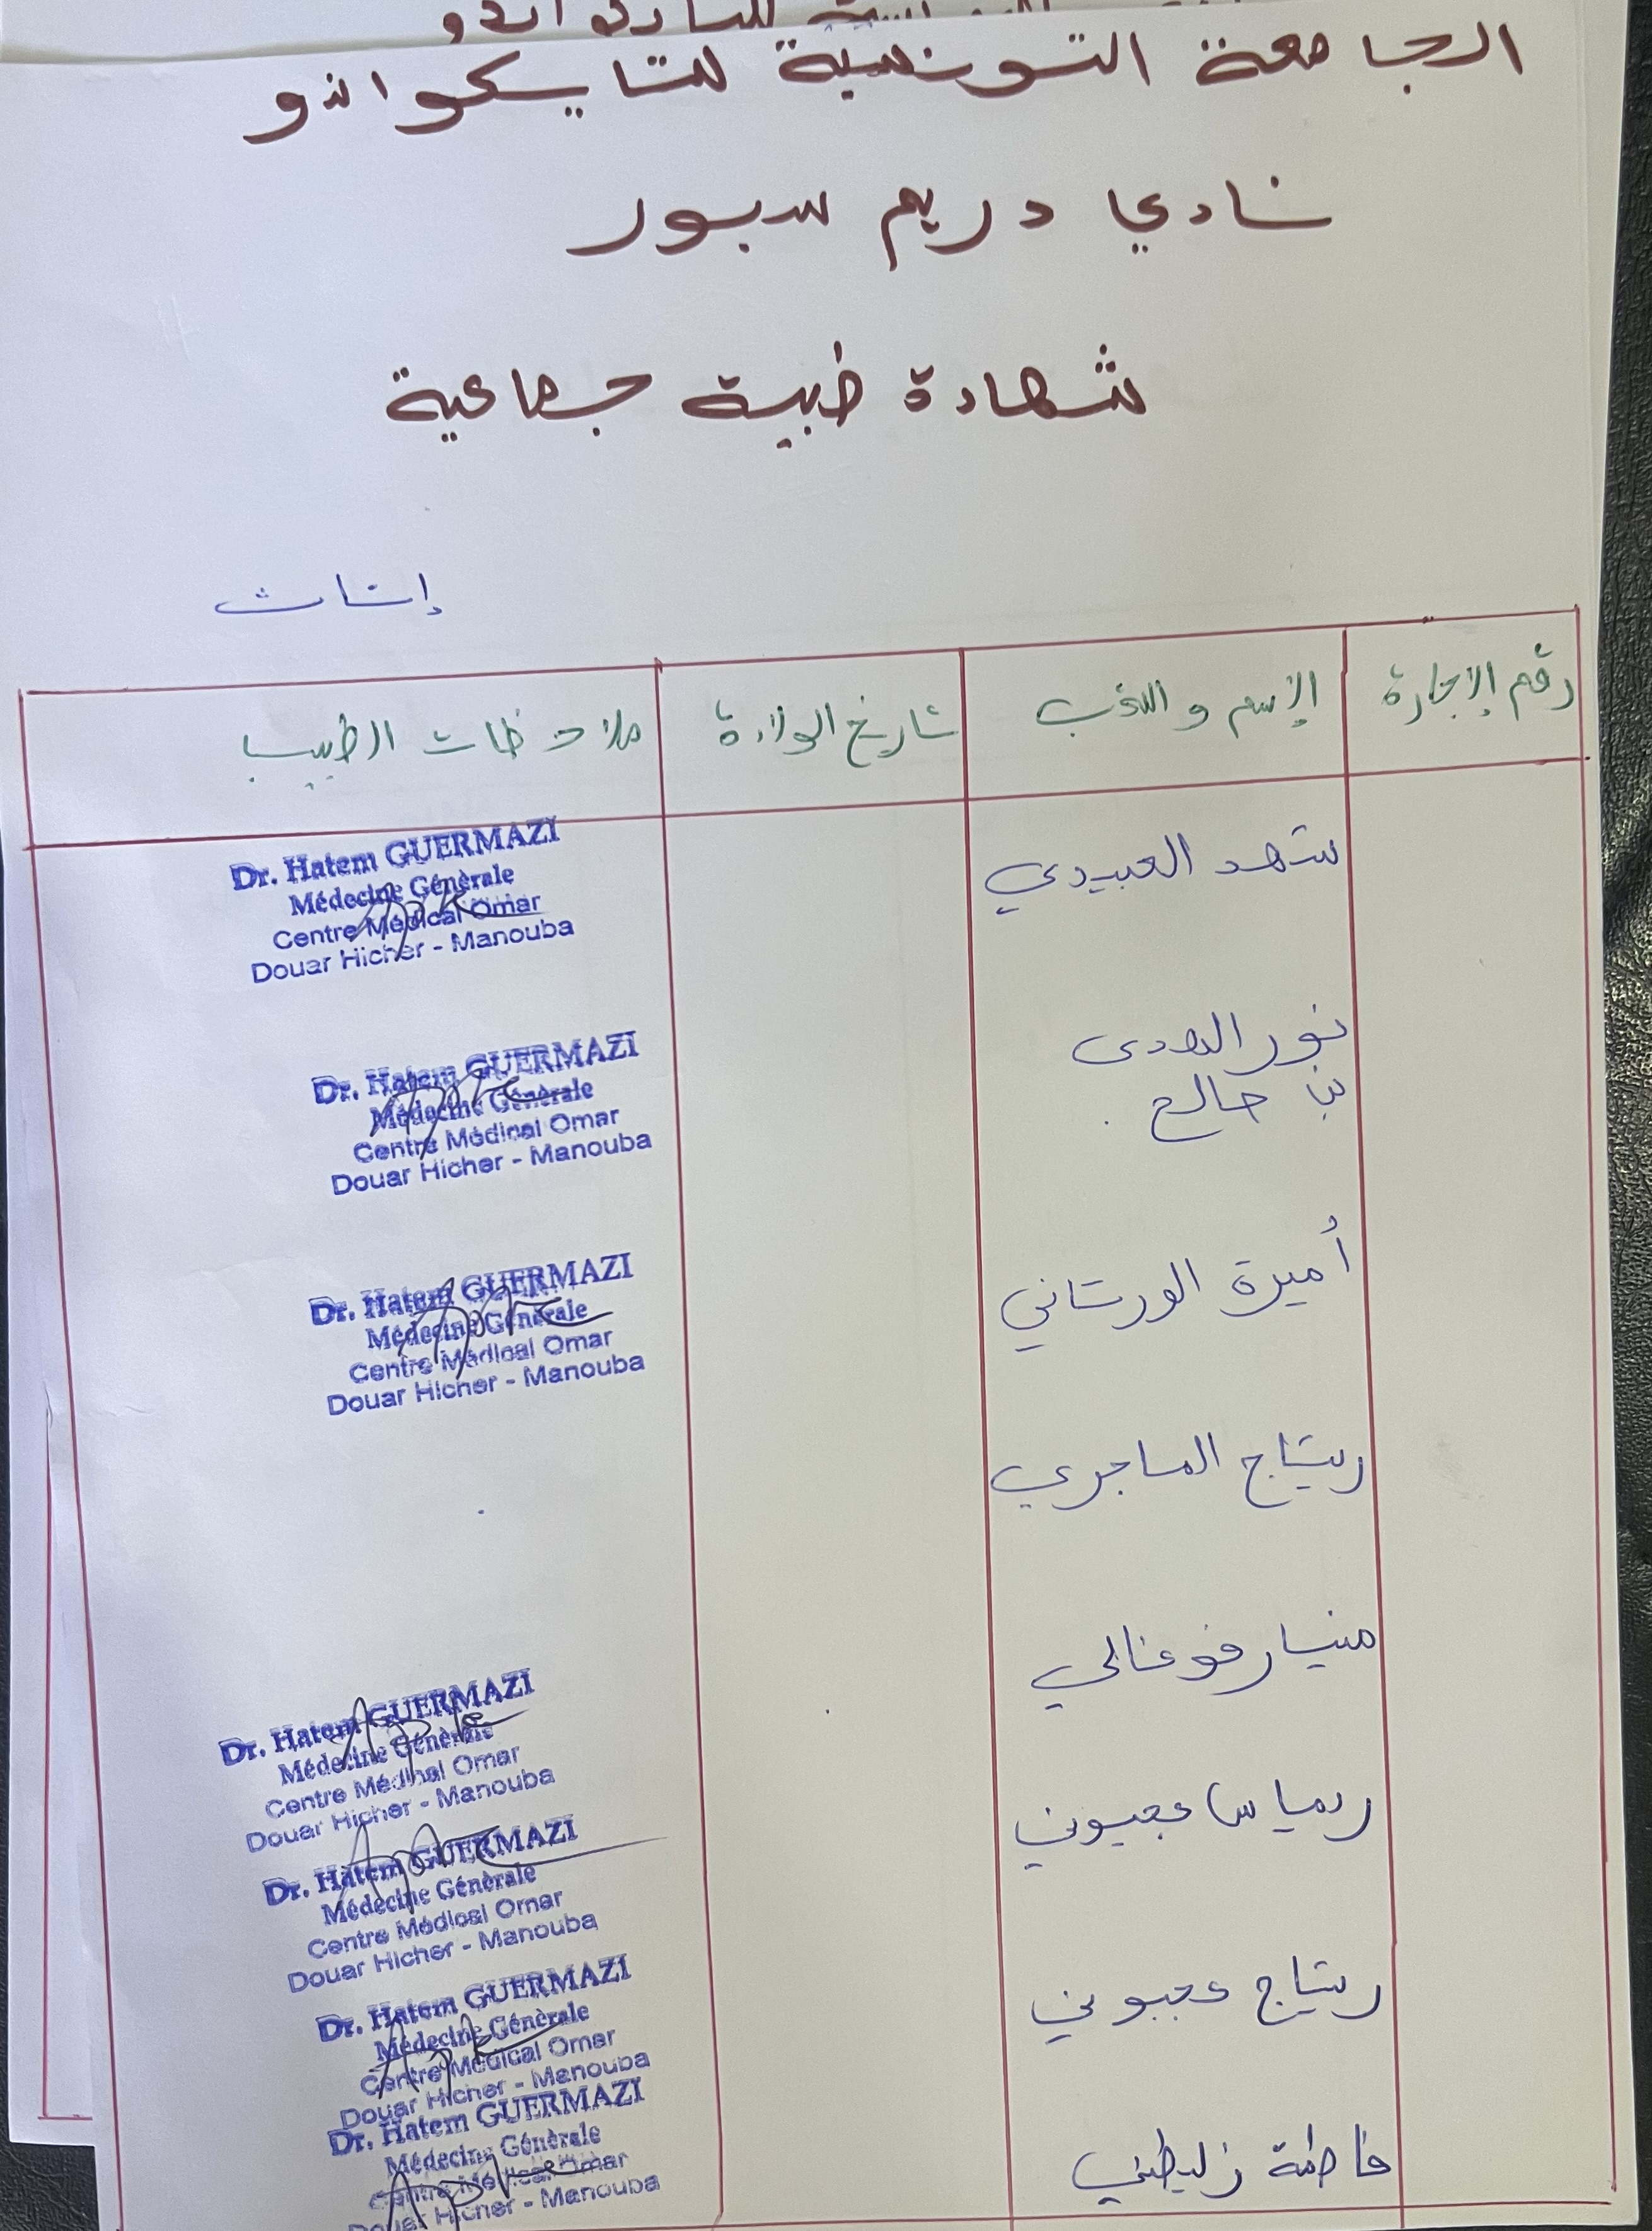 الجامعة التونسية للتايكواندو
نادي دريم سبور
شهادة طبية جماعية
إناث
رقم الإجازة الإسم واللقب تاريخ الولادة ملاحظات الطبيب
شهد العبيدي
Dr. Hatem GUERMAZI
Médecine Générale
Centre Médical Omar
Douar Hicher - Manouba
نور الهدى
بن صالح
Dr. Hatem GUERMAZI
Médecine Générale
Centre Médical Omar
Douar Hicher - Manouba
أميرة الورتاني
Dr. Hatem GUERMAZI
Médecine Générale
Centre Médical Omar
Douar Hicher - Manouba
ريتاج الماجري
منيار فوغالي
Dr. Hatem GUERMAZI
Médecine Générale
Centre Médical Omar
Douar Hicher - Manouba
ريماس عجبوني
Dr. Hatem GUERMAZI
Médecine Générale
Centre Médical Omar
Douar Hicher - Manouba
ريتاج عجبوني
Dr. Hatem GUERMAZI
Médecine Générale
Centre Médical Omar
Douar Hicher - Manouba
فاطمة زليطني
Dr. Hatem GUERMAZI
Médecine Générale
Centre Médical Omar
Douar Hicher - Manouba